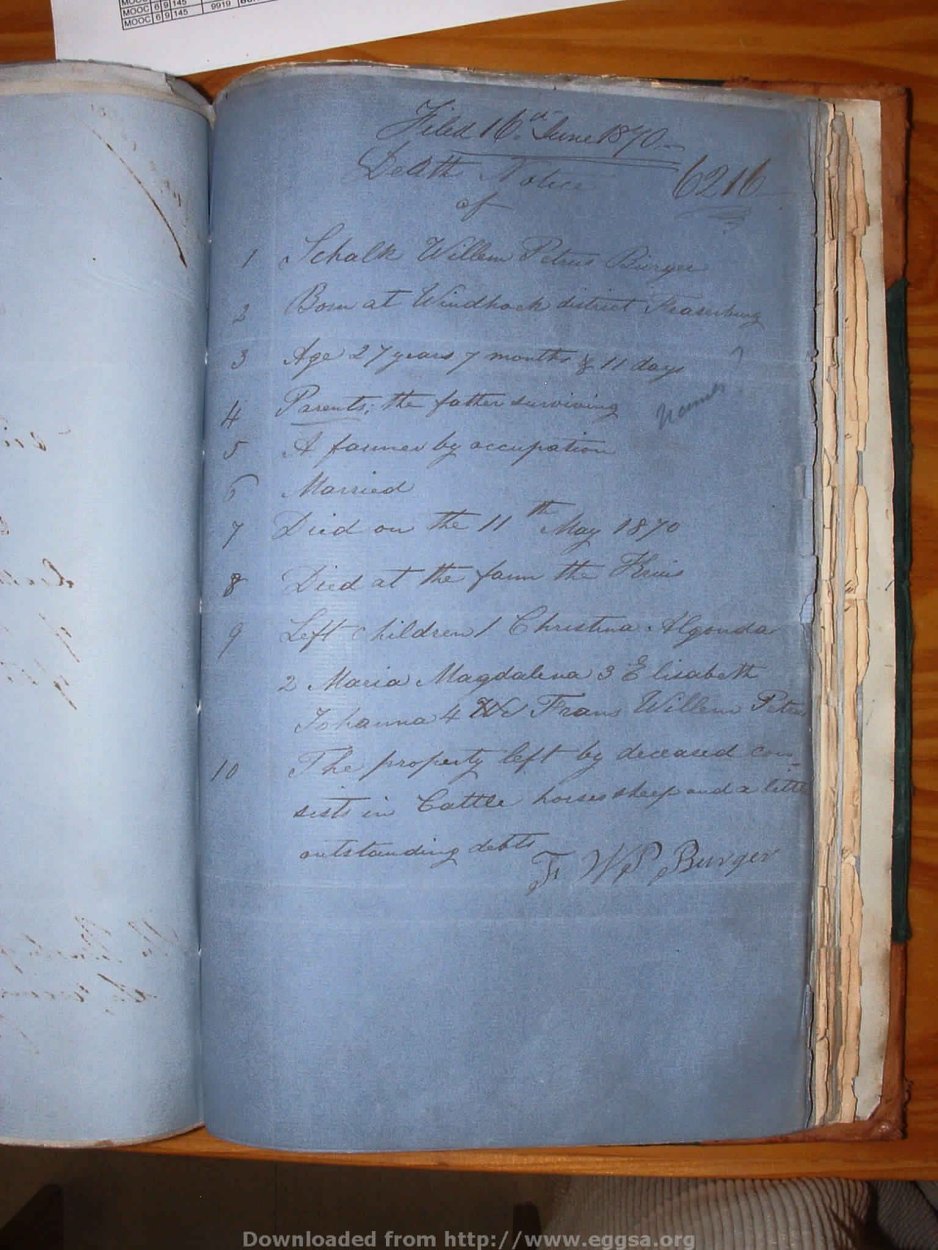 MOOC 6 9 145
MOOC 6 9 145 9919
Filed 16th June 1870
Death Notice 6216
of
1 Schalk Willem Petrus Burger
2 Born at Windhoek district Fraserburg
3 Age 27 years 7 months & 11 days ?
4 Parents; the father surviving names
5 A farmer by occupation
6 Married
7 Died on the 11th May 1870
8 Died at the farm the Kruis
9 Left children 1 Christina Algonda
2 Maria Magdalena 3 Elisabeth
Johanna 4 Frans Willem Petrus
10 The property left by deceased con-
sists in Cattle horses sheep and a little
outstanding debts
F W P Burger
Downloaded from http://www.eggsa.org